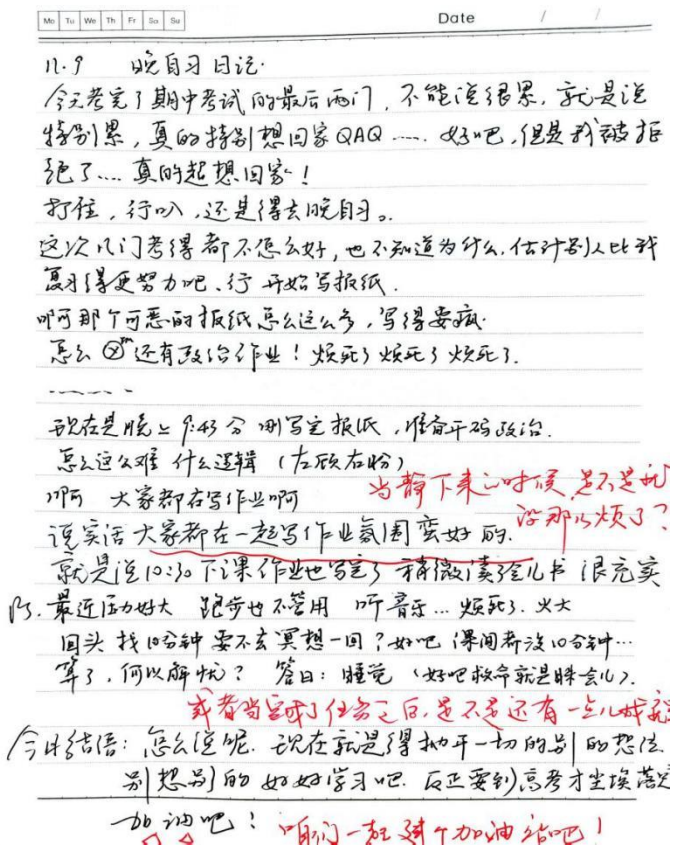 Mo Tu We Th Fr Sa Su
Date / /
11.9 晚自习日记.
今天考完了期中考试的最后两门，不能说很累，就是说
特别累，真的特别想回家QAQ ..... 好吧，但是我被拒
绝了.... 真的超想回家！
打住，行叭，还是得去晚自习。
这次几门考得都不怎么好，也不知道为什么，估计别人比我
复习得更努力吧、行 开始写报纸.
啊啊那个可恶的报纸怎么这么多，写得要疯.
怎么 还有政治作业！烦死了烦死了烦死了.
现在是晚上9:43分 刚写完报纸，准备开码政治.
怎么这么难 什么逻辑（左顾右盼）
啊啊 大家都在写作业啊
当静下来的时候，是不是就
没那么烦了？
说实话大家都在一起写作业氛围蛮好的.
就是说10:30下课作业也写完了 稍微读会儿书 很充实
Ps. 最近压力好大 跑步也不管用 听音乐... 烦死了. 火大
回头找10分钟 要不去冥想一回？好吧 课间都没10分钟...
算了，何以解忧？ 答曰：睡觉（好吧救命就是眯会儿）.
或者当完成了任务之后，是不是还有一点儿成就
今日结语：怎么说呢. 现在就是得抛开一切的别的想法
别想别的 好好学习吧. 反正要到高考才尘埃落定
加油吧！
咱们一起建个加油站吧！